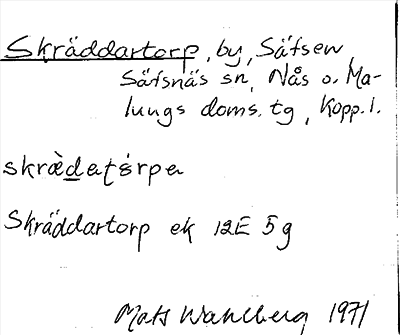 Skräddartorp, by, Säfsen,
Säfsnäs sn, Nås o. Ma-
lungs doms. tg, Kopp. l.
skræ̀dat́ɛ́rpa
Skräddartorp ek 12E 5g
Mats Wahlberg 1971